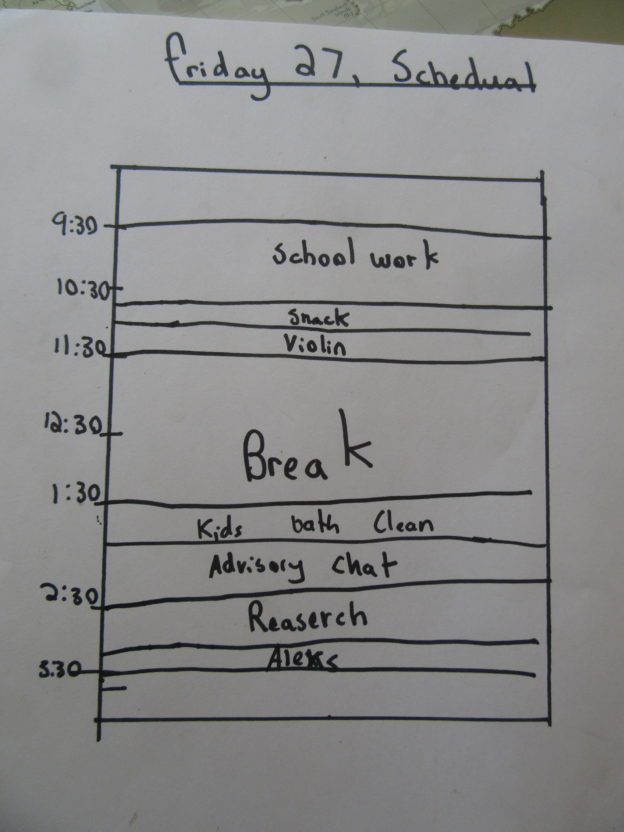 Friday 27, Schedual
9:30
School work
10:30
Snack
Violin
11:30
12:30
Break
1:30
Kids bath Clean
Advisory Chat
2:30
Reaserch
3:30